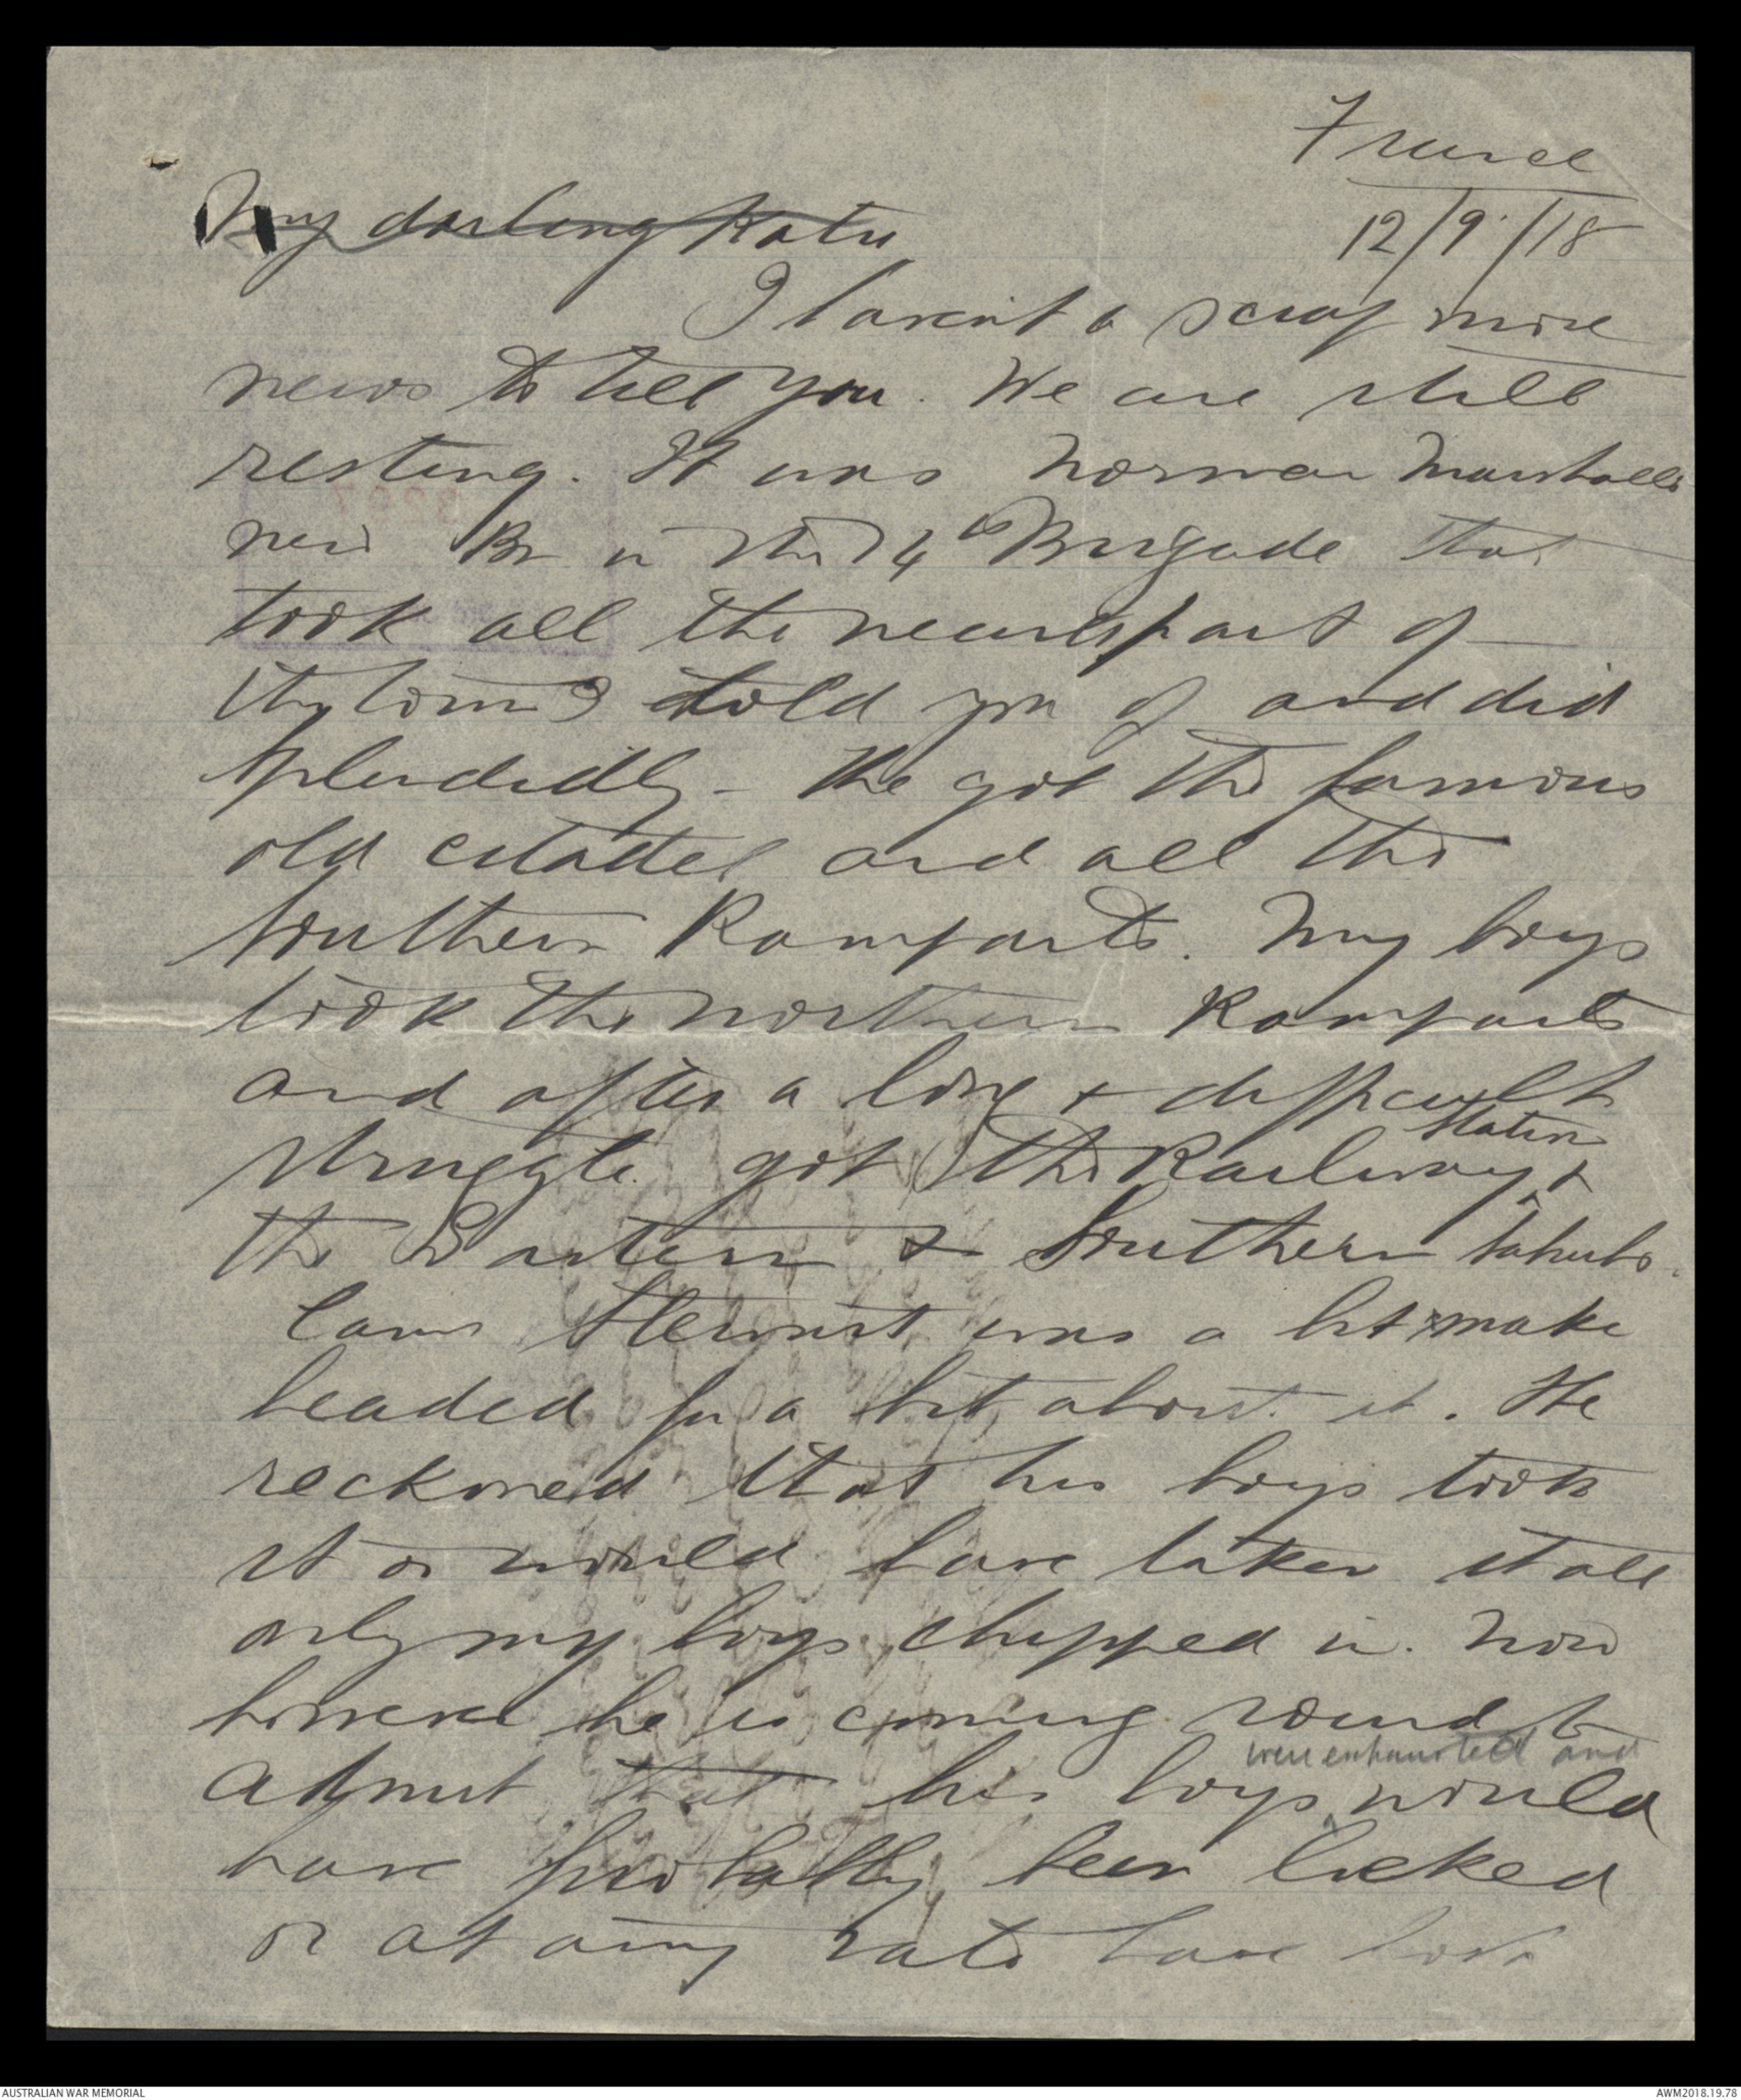 France
12/9/18
My darling Katie
I havent a scrap more
news to tell you. We are still
resting. It was Norman Marshalls
new Bn in the 14th Brigade that
took all the near part of
the town I told you of and did
splendidly - He got the famous
old citadel and all the
southern Ramparts. My boys
took the northern Ramparts
and after a long & difficult
struggle got the Railway Station &
the Eastern & Southern suburbs.
Cam Stewart was a bit
headed for a bit about it. He
reckoned that his boys took
it or would have taken it all
only my boys chipped in. Now
however he is coming round to
admit that his boys were exhausted and would
have probably been licked
or at any rate have lost
AUSTRALIAN WAR MEMORIAL
AWM2018.19.78